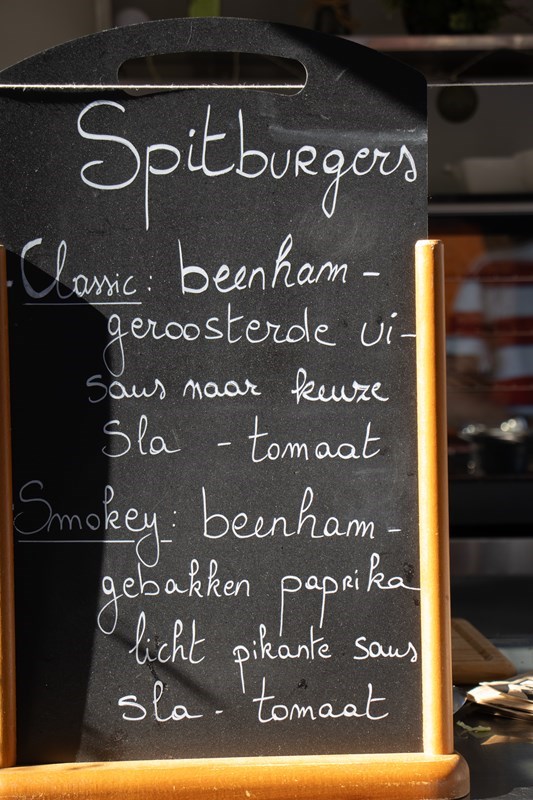 Spitburgers
- Classic: beenham -
geroosterde ui -
saus naar keuze
Sla - tomaat
Smokey: beenham -
gebakken paprika
licht pikante saus
sla - tomaat